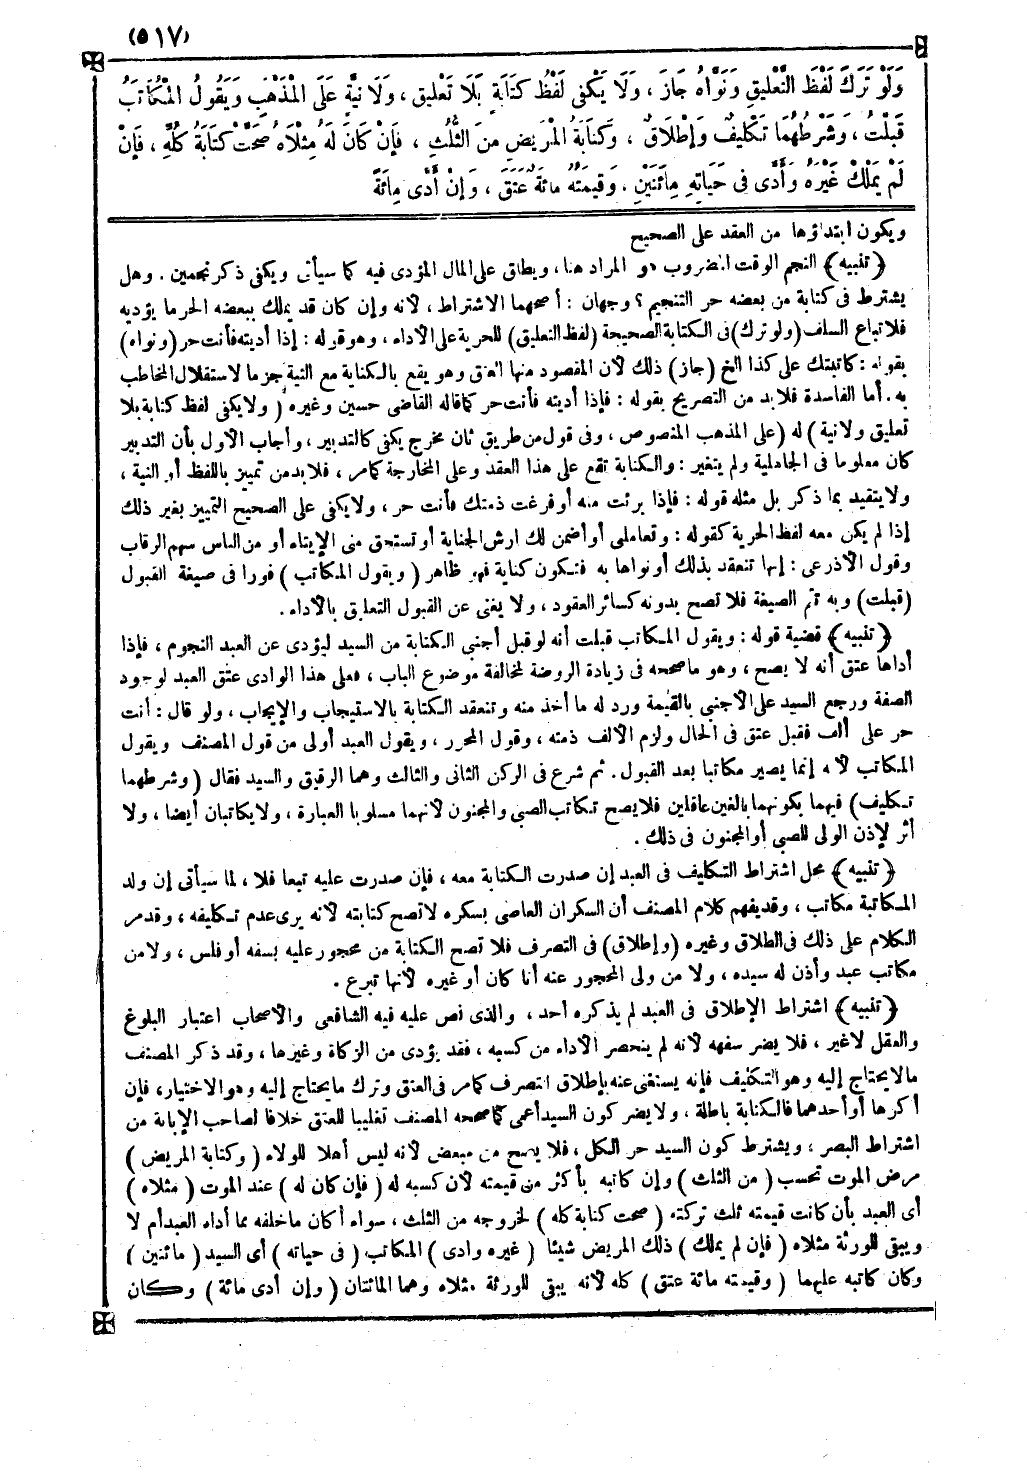 (٥١٧)
وَلَوْ تَرَكَ لَفْظَ التَّعْلِيقِ وَنَوَاهُ جَازَ ، وَلَا يَكْفِى لَفْظُ كِتَابَةٍ بِلَا تَعْلِيقٍ ، وَلَا نِيَّةٍ عَلَى الْمَذْهَبِ وَيَقُولُ الْمُكَاتَبُ
قَبِلْتُ ، وَشَرْطُهُمَا تَكْلِيفٌ وَإِطْلَاقٌ ، وَكِتَابَةُ الْمَرِيضِ مِنَ الثُّلُثِ ، فَإِنْ كَانَ لَهُ مِثْلَاهُ صَحَّتْ كِتَابَةُ كُلِّهِ ، فَإِنْ
لَمْ يَمْلِكْ غَيْرَهُ وَأَدَّى فِى حَيَاتِهِ مِائَتَيْنِ ، وَقِيمَتُهُ مِائَةٌ عَتَقَ ، وَإِنْ أَدَّى مِائَةً
ويكون ابتداؤها من العقد على الصحيح
(تنبيه) النجم الوقت المضروب هو المراد هنا ، ويطلق على المال المؤدى فيه كما سيأتى ويكفى ذكر نجمين . وهل
يشترط فى كتابة من بعضه حر التنجيم ؟ وجهان : أصحهما الاشتراط ، لأنه وإن كان قد يملك ببعضه الحر ما يؤديه
فلا تباع السلف (ولو ترك) فى الكتابة الصحيحة (لفظ التعليق) للحرية على الأداء ، وهو قوله : إذا أديته فأنت حر (ونواه)
بقوله : كاتبتك على كذا الخ (جاز) ذلك لأن المقصود منها العتق وهو يقع بالكناية مع النية جزما لاستقلال المخاطب
به . أما الفاسدة فلا بد من التصريح بقوله : فإذا أديته فأنت حر كما قاله القاضى حسين وغيره ( ولا يكفى لفظ كتابة بلا
تعليق ولا نية ) له (على المذهب المنصوص ، وفى قول من طريق ثان مخرج يكفى كالتدبير ، وأجاب الأول بأن التدبير
كان معلوما فى الجاهلية ولم يتغير : والكتابة تقع على هذا العقد وعلى المخارجة كما مر ، فلا بد من تمييز باللفظ أو النية ،
ولا يتقيد بما ذكر بل مثله قوله : فإذا برئت منه أو فرغت ذمتك فأنت حر ، ولا يكفى على الصحيح التمييز بغير ذلك
إذا لم يكن معه لفظ الحرية كقوله : وتعاملنى أو أضمن لك ارش الجناية أو تستحق منى الإيتاء أو من الناس سهم الرقاب
وقول الأذرعى : إنها تنعقد بذلك أو نواها به فتكون كناية فهو ظاهر ( ويقول المكاتب ) فورا فى صيغة القبول
(قبلت) وبه تتم الصيغة فلا تصح بدونه كسائر العقود ، ولا يغنى عن القبول التعليق بالأداء .
(تنبيه) قضية قوله : ويقول المكاتب قبلت أنه لو قبل أجنبى الكتابة من السيد ليؤدى عن العبد النجوم ، فإذا
أداها عتق أنه لا يصح ، وهو ما صححه فى زيادة الروضة لمخالفة موضوع الباب ، فعلى هذا الوادى عتق العبد لوجود
الصفة ورجع السيد على الأجنبى بالقيمة ورد له ما أخذ منه وتنعقد الكتابة بالاستيجاب والإيجاب ، ولو قال : أنت
حر على ألف فقبل عتق فى الحال ولزم الألف ذمته ، وقول المحرر ، ويقول العبد أولى من قول المصنف ويقول
المكاتب لأنه إنما يصير مكاتبا بعد القبول . ثم شرع فى الركن الثانى والثالث وهما الرقيق والسيد فقال (وشرطهما
تكليف) فيهما بكونهما بالغين عاقلين فلا يصح تكاتب الصبى والمجنون لأنهما مسلوبا العبارة ، ولا يكاتبان أيضا ، ولا
أثر لإذن الولى للصبى أو المجنون فى ذلك .
(تنبيه) محل اشتراط التكليف فى العبد إن صدرت الكتابة معه ، فإن صدرت عليه تبعا فلا ، لما سيأتى إن ولد
المكاتبة مكاتب ، وقد يفهم كلام المصنف أن السكران العاصى بسكره لا تصح كتابته لأنه يرى عدم تكليفه ، وقد مر
الكلام على ذلك فى الطلاق وغيره (وإطلاق) فى التصرف فلا تصح الكتابة من محجور عليه بسفه أو فلس ، ولا من
مكاتب عبد وأذن له سيده ، ولا من ولى المحجور عنه أبا كان أو غيره لأنها تبرع .
(تنبيه) اشتراط الإطلاق فى العبد لم يذكره أحد ، والذى نص عليه فيه الشافعى والأصحاب اعتبار البلوغ
والعقل لا غير ، فلا يضر سفهه لأنه لم ينحصر الأداء من كسبه ، فقد يؤدى من الزكاة وغيرها ، وقد ذكر المصنف
مالا يحتاج إليه وهو التكليف فإنه يستغنى عنه بإطلاق التصرف كما مر فى العتق وترك ما يحتاج إليه وهو الاختيار ، فإن
أكرها أو أحدهما فالكتابة باطلة ، ولا يضر كون السيد أعمى كما صححه المصنف تغليبا للعتق خلافا لصاحب الإبانة من
اشتراط البصر ، ويشترط كون السيد حر الكل ، فلا يصح من مبعض لأنه ليس أهلا للولاء ( وكتابة المريض )
مرض الموت تحسب ( من الثلث ) وإن كاتبه بأكثر من قيمته لأن كسبه له ( فإن كان له ) عند الموت ( مثلاه )
أى العبد بأن كانت قيمته ثلث تركته ( صحت كتابة كله ) لخروجه من الثلث ، سواء أكان ما خلفه مما أداه العبد أم لا
ويبقى للورثة مثلاه ( فإن لم يملك ) ذلك المريض شيئا ( غيره وادى ) المكاتب ( فى حياته ) أى السيد ( مائتين )
وكان كاتبه عليهما ( وقيمته مائة عتق ) كله لأنه يبقى للورثة مثلاه وهما المائتان ( وإن أدى مائة ) وكان